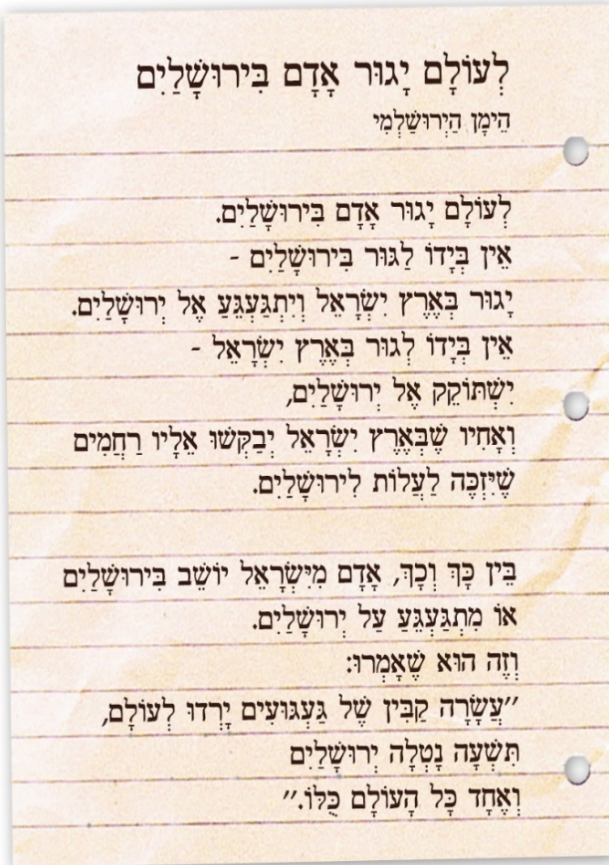 לְעוֹלָם יָגוּר אָדָם בִּירוּשָׁלַיִם
הֵימָן הַיְרוּשַׁלְמִי
לְעוֹלָם יָגוּר אָדָם בִּירוּשָׁלַיִם.
אֵין בְּיָדוֹ לַגּוּר בִּירוּשָׁלַיִם -
יָגוּר בְּאֶרֶץ יִשְׂרָאֵל וְיִתְגַּעְגֵּעַ אֶל יְרוּשָׁלַיִם.
אֵין בְּיָדוֹ לָגוּר בְּאֶרֶץ יִשְׂרָאֵל -
יִשְׁתּוֹקֵק אֶל יְרוּשָׁלַיִם,
וְאָחִיו שֶׁבְּאֶרֶץ יִשְׂרָאֵל יְבַקְּשׁוּ אֵלָיו רַחֲמִים
שֶׁיִּזְכֶּה לַעֲלוֹת לִירוּשָׁלַיִם.
בֵּין כָּךְ וְכָךְ, אָדָם מִיִּשְׂרָאֵל יוֹשֵׁב בִּירוּשָׁלַיִם
אוֹ מִתְגַּעְגֵּעַ עַל יְרוּשָׁלַיִם.
וְזֶה הוּא שֶׁאָמְרוּ:
"עֲשָׂרָה קַבִּין שֶׁל גַּעְגּוּעִים יָרְדוּ לְעוֹלָם,
תִּשְׁעָה נָטְלָה יְרוּשָׁלַיִם
וְאֶחָד כָּל הָעוֹלָם כֻּלּוֹ."